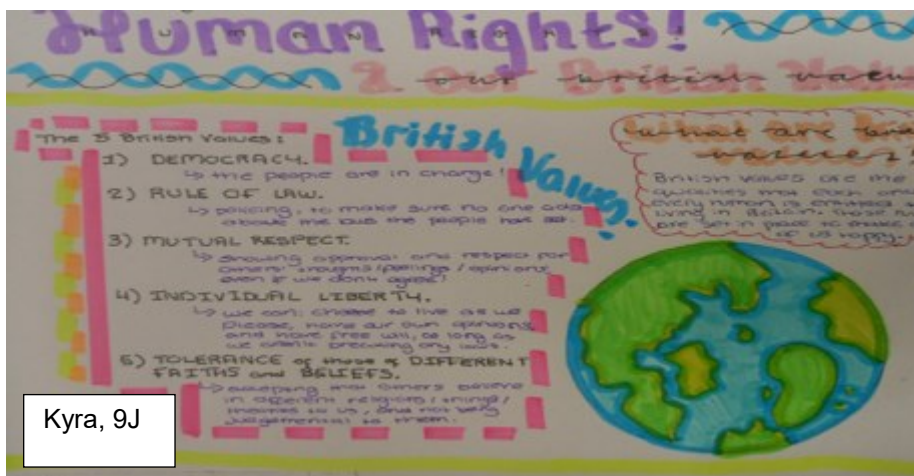 Human Rights!
& our British valu
British Values!
The 5 British Values:
1) DEMOCRACY.
↳ the people are in charge!
2) RULE OF LAW.
↳ policing, to make sure no one
above the law the people have set.
3) MUTUAL RESPECT.
↳ showing approval and respect for
others' thoughts/feelings/opinions,
even if we don't agree!
4) INDIVIDUAL LIBERTY.
↳ we can choose to live as we
please, have our own opinions
and have free will, as long as
we aren't breaking any laws.
5) TOLERANCE of those of DIFFERENT
FAITHS and BELIEFS.
↳ accepting that others believe
in different religions/things/
to us, and not being
judgemental to them.
what are
values?
British values are the
qualities that each and
every human is entitled
living in Britain. These
are set in place to make
of us happy.
Kyra, 9J